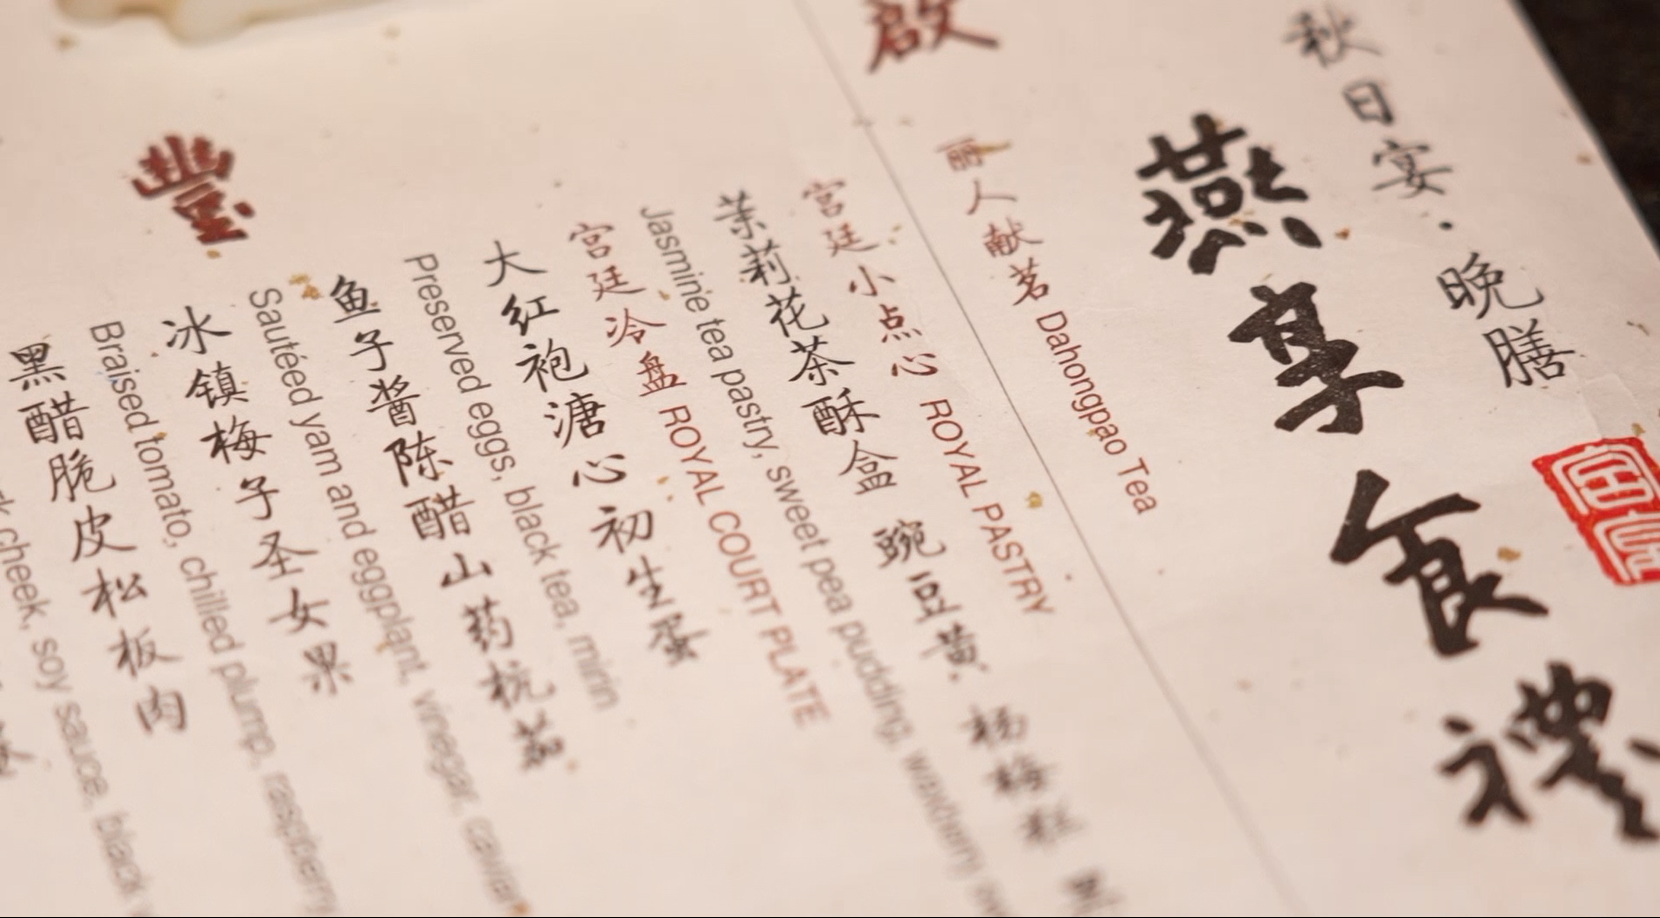 秋日宴·晚膳
燕享食禮
啟
丽人献茗 Dahongpao Tea
宫廷小点心 ROYAL PASTRY
茉莉花茶酥盒 豌豆黄 杨梅
Jasmine tea pastry, sweet pea pudding, waxberry
宫廷冷盘 ROYAL COURT PLATE
大红袍溏心初生蛋
Preserved eggs, black tea, mirin
鱼子酱陈醋山药杭茄
Sautéed yam and eggplant, vinegar, caviar
冰镇梅子圣女果
Braised tomato, chilled plump, raspberry
黑醋脆皮松板肉
cheek, soy sauce, black
豐